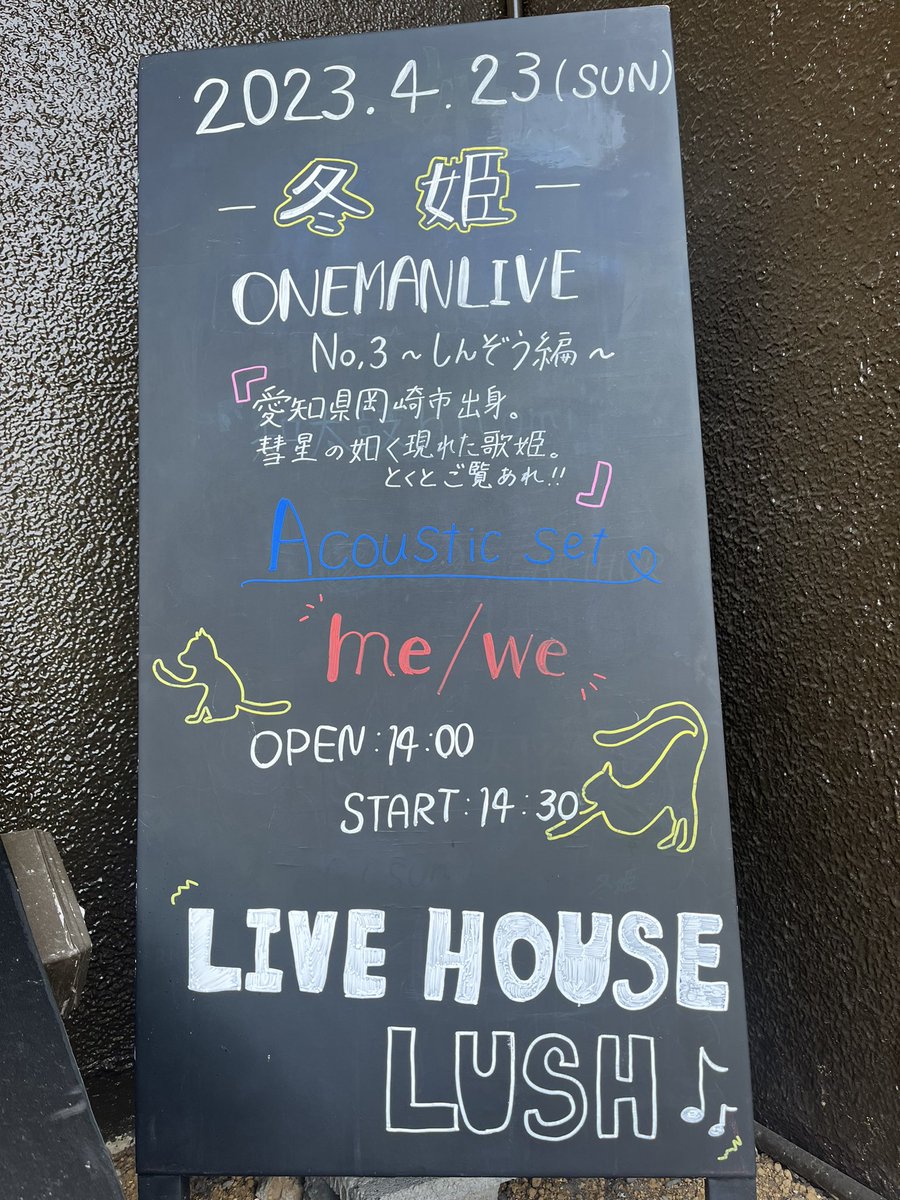 2023.4.23(SUN)
-冬姫-
ONEMANLIVE
No.3 ~しんぞう編~
『愛知県岡崎市出身。
彗星の如く現れた歌姫。
とくとご覧あれ!!』
Acoustic set
me/we
OPEN:14:00
START:14:30
LIVE HOUSE
LUSH